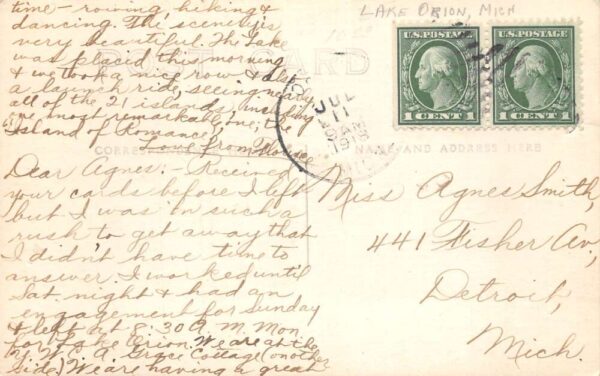 LAKE ORION, MICH
time - rowing, hiking &
dancing. The scenery is
very beautiful. The lake
was placid this morning
& we took a nice row & also
a launch ride, seeing nearly
all of the 21 islands, including
the most remarkable one, the
"Island of Romance,"
Love from
CARD
U.S. POSTAGE
1 CENT 1
U.S. POSTAGE
1 CENT 1
JUL
11
NAME AND ADDRESS HERE
Dear Agnes:- Received
your cards before I left
but I was in such a
rush to get away that
I didn't have time to
answer. I worked until
Sat. night & had an
engagement for Sunday
& left at 8:30 A.M. Mon.
for Lake Orion. We are at the
Y.W.C.A. Grace Cottage (on other
side) We are having a great
Miss Agnes Smith,
441 Fisher Av,
Detroit,
Mich.